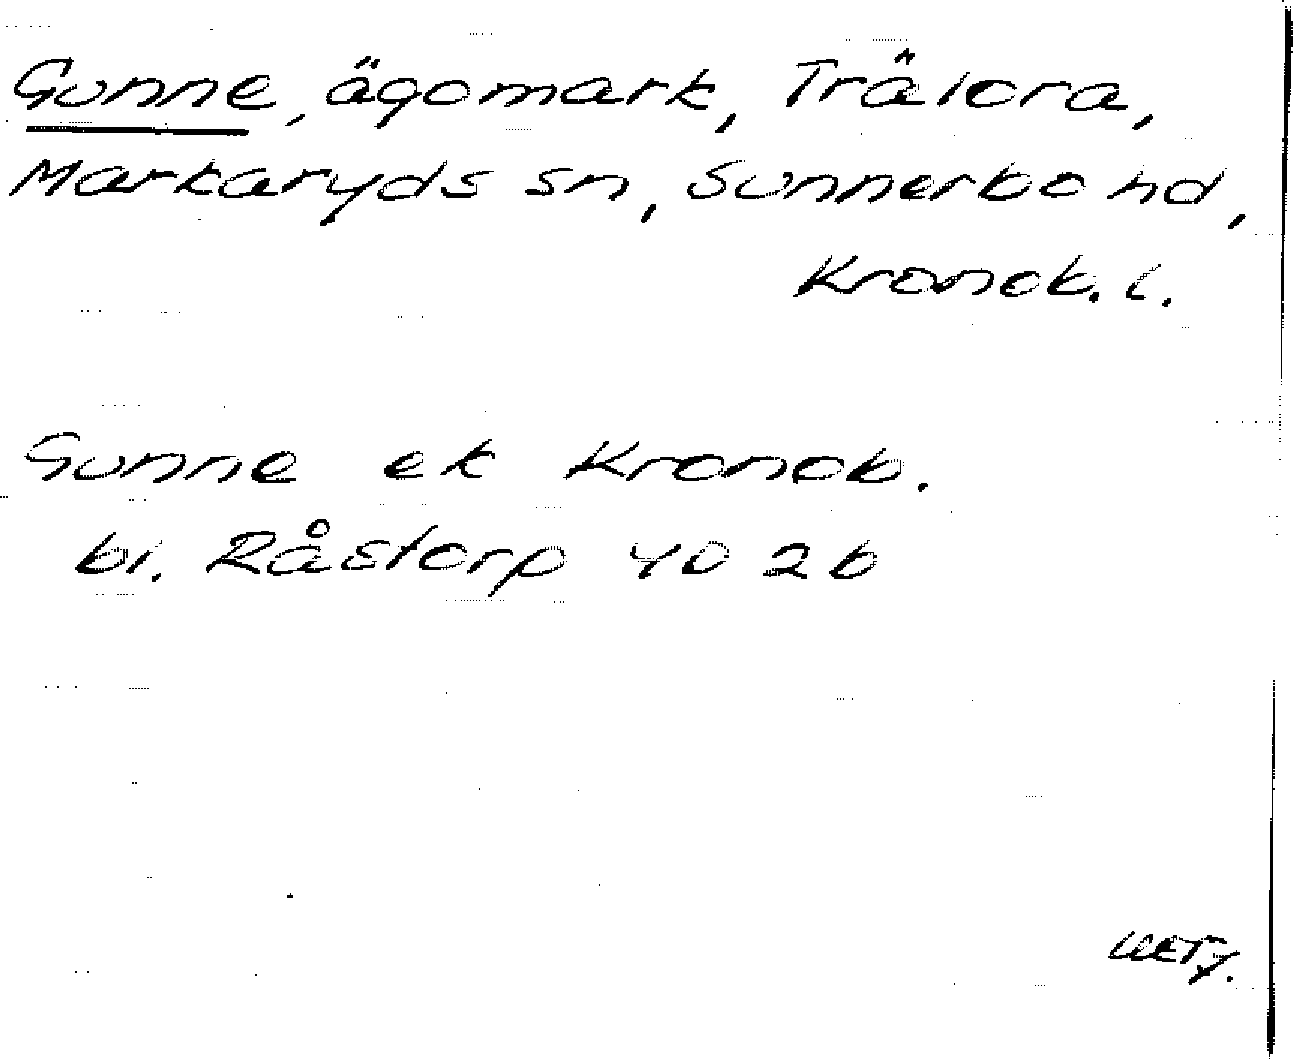 Gunne, ägomark, Trälora,
Markaryds sn, Sunnerbo hd,
Kronob. l.
Gunne ek Kronob.
bl. Råstorp 4D 2b